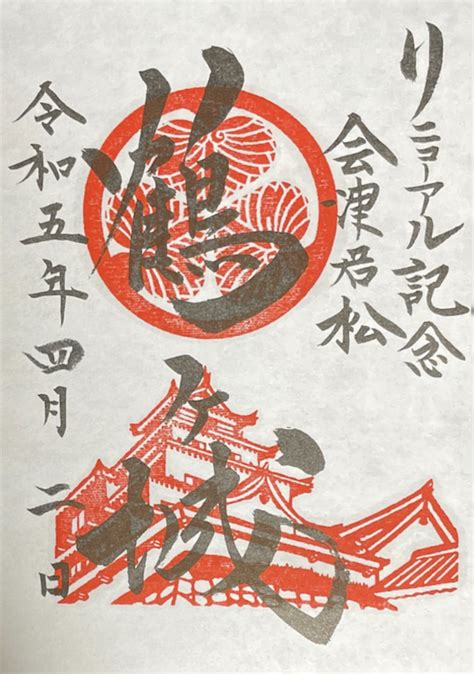 リニューアル記念
会津若松
鶴ヶ城
令和五年四月二日